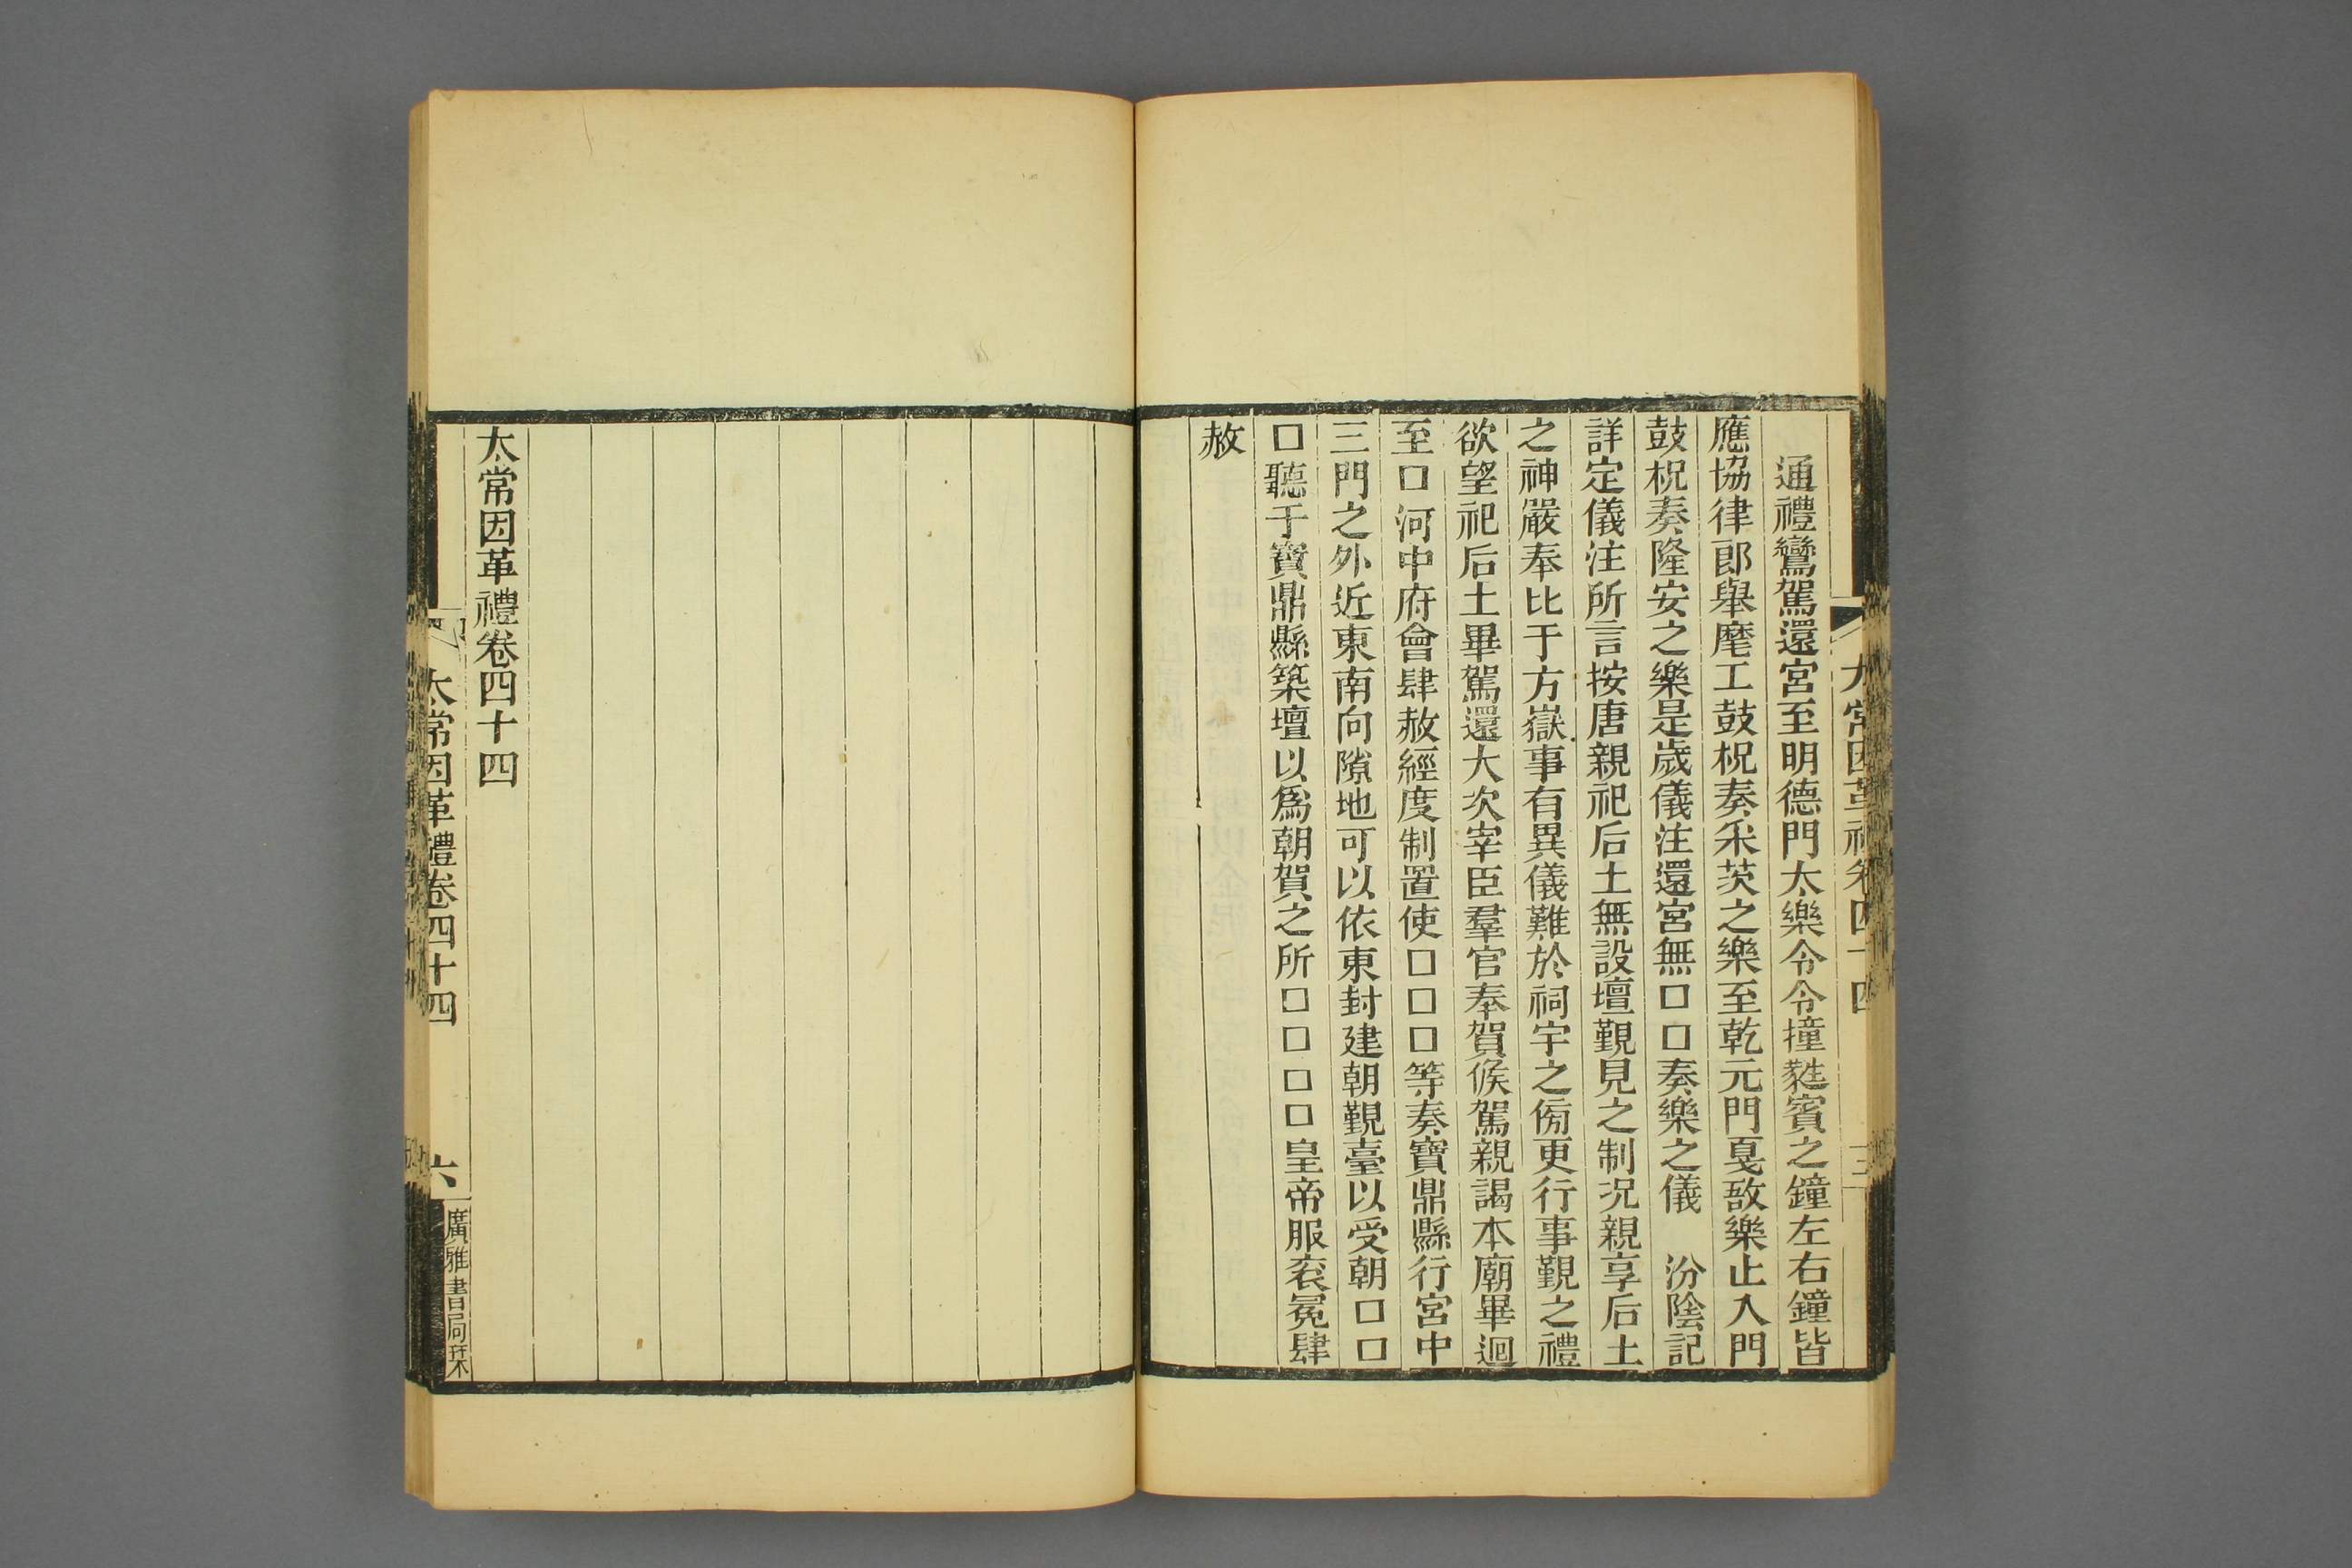 通禮鸞駕還宮至明德門太樂令令撞蕤賓之鐘左右鐘皆
應協律郎舉麾工鼓柷奏采茨之樂至乾元門戛敔樂止入門
鼓柷奏隆安之樂是歲儀注還宮無□□奏樂之儀　汾陰記
詳定儀注所言按唐親祀后土無設壇覲見之制況親享后土
之神嚴奉比于方嶽事有異儀難於祠宇之傍更行事覲之禮
欲望祀后土畢駕還大次宰臣羣官奉賀候駕親謁本廟畢迴
至□河中府會肆赦經度制置使□□□等奏寶鼎縣行宮中
三門之外近東南向隙地可以依東封建朝覲臺以受朝□□
□聽于寶鼎縣築壇以爲朝賀之所□□□□皇帝服衮冕肆
赦
太常因革禮卷四十四
太常因革禮卷四十四
六
廣雅書局栞